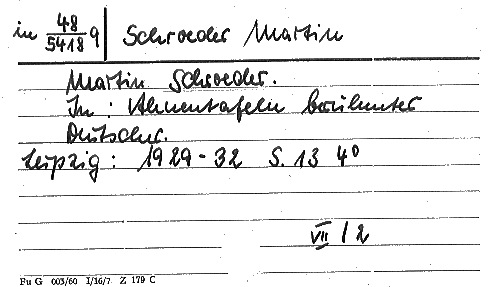 in 48/5418 q Schroeder Martin
Martin Schroeder.
In: Ahnentafeln berühmter
Deutscher.
Leipzig: 1929-32 S. 13 4°
VII / 2
Fu G 003/60 I/16/7 Z 179 C